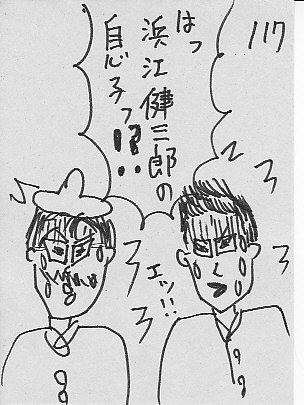 117
はっ
浜江健三郎の
息子っ!?
エッ!!